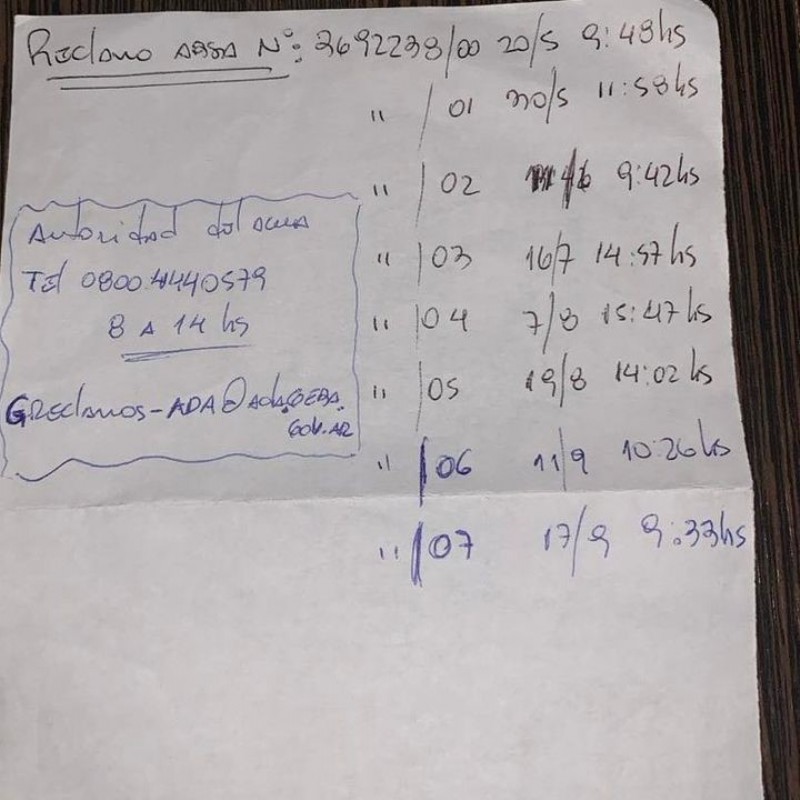 Reclamo ABSA Nº: 3692238/00 20/5 9:48hs
" /01 30/5 11:58hs
" /02 9:42hs
" /03 16/7 14:57hs
" /04 7/8 15:47hs
" /05 19/8 14:02hs
" /06 11/9 10:26hs
" /07 17/9 9:33hs
Autoridad del agua
Tel 0800.4440579
8 A 14 hs
GReclamos-ADA@ADA.GEBA.
GOV.AR